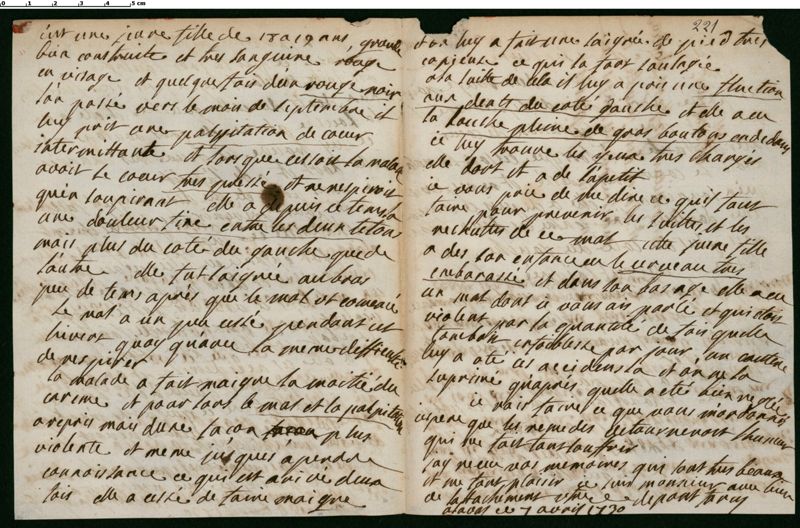 0 1 2 3 4 5 cm
une jeune fille de 18 a 19 ans, grande
bien construite et tres sanguine rouge
en visage et quelque fois d'un rouge noir
l'an passé vers le mois de septembre il
luy prit une palpitation de coeur
intermittante et lorsque cessoit la malade
avoit le coeur tres pressé et ne respiroit
qu'en soupirant elle a depuis ce tems la
une douleur fixe entre les deux tetons
mais plus du coté du gauche que de
l'autre elle fut saignée au bras
peu de tems après que le mal ut comencé
Le mal a un peu cessé pendant cet
hivert quoy qu'avec la meme difficulté
de respirer
la malade a fait maigre la moitié du
careme et pour lors le mal et la palpitation
a repris mais d'une facon plus
violente et meme jusques a perdre
connoissance ce qui est arivé deux
fois elle a cessé de faire maigre
221
et on luy a fait une saignée de pied tres
copieuse ce qui la fort soulagée
a la suite de cela il luy a pris une fluction
aux dents du coté gauche et elle a eu
la bouche pleine de gros boutons en dedans
je luy trouve les yeux tres chargés
elle dort et a de l'apetit
je vous prie de me dire ce qu'il faut
faire pour prevenir les suittes, et les
rechuttes de ce mal cette jeune fille
a des son enfance eu le cerveau tres
embarassé et dans son bas age elle a eu
un mal dont je vous ais parlé et qui etoit
violent par la quantité de fois quelle
tomboit par jour, un cautere
luy a oté ces accidens la et on ne la
suprimé qu'apres quelle a été bien reglée
je vais faire ce que vous m'ordonnés
j'espere que les remedes detourneront l'humeur
qui me fait tant souffrir
j'ay receu vos memoires qui sont tres beaux
et me font plaisir je suis monsieur avec bien
de l'attachement votre
ce 7 avril 1730